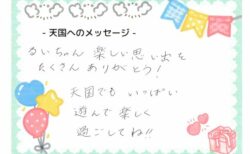 - 天国へのメッセージ -
るいちゃん 楽しい思い出を
たくさん ありがとう！
天国でも いっぱい
遊んで 楽しく
過ごしてね!!